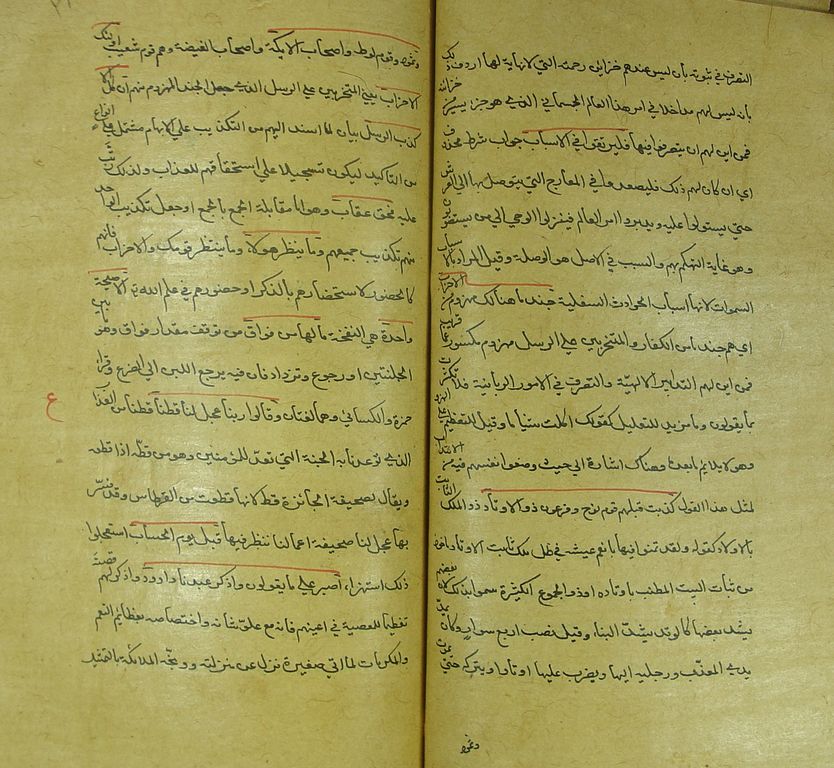 التصرف في نبوته بان ليس عندهم خزائن رحمته التي لا نهاية لها اردف ذلك
بانه ليس لهم مداخلا في امر هذا العالم الجسماني الذي هو جزء يسير من خزائنه
فمن اين لهم ان يتصرفوا فيها فليرتقوا في الاسباب جواب شرط محذوف
اي ان كان لهم ذلك فليصعدوا في المعارج التي يتوصل بها الى العرش
حتى يستولوا عليه ويدبروا امر العالم فينزلوا الوحي الى من يستصوبون
وهو غاية التهكم بهم والسبب في الاصل هو الوصلة وقيل المراد بالاسباب
السموات لانها اسباب الحوادث السفلية جند ما هنالك مهزوم من الاحزاب
اي هم جند ما من الكفار والمتحزبين على الرسل مهزوم مكسور عما قريب
فمن اين لهم التدابير الالهية والتصرف في الامور الربانية فلا تكترث
بما يقولون وما مزيد للتقليل كقولك اكلت شيئا ما وقيل للتعظيم
وهو لا يلايم ما بعده وهناك اشارة الى حيث وضعوا انفسهم فيه من الانتداب
لمثل هذا القول كذبت قبلهم قوم نوح وفرعون ذو الاوتاد ذو الملك الثابت
بالاوتاد كقوله ولقد غنوا فيها بانعم عيشة في ظل ملك ثابت الاوتاد ماخوذ
من ثبات البيت المطنب باوتاده او ذو الجموع الكثيرة سموا بذلك لان بعضهم
يشد بعضها كالوتد يشد البناء وقيل نصب اربع سوار وكان يمد
يدي المعذب ورجليه اليها ويضرب عليها اوتادا ويتركه حتى يموت
وثمود
وثمود وقوم لوط واصحاب الايكة واصحاب الغيضة وهم قوم شعيب اولئك
الاحزاب يعني المتحزبين على الرسل الذي جعل الجند المهزوم منهم ان كل الا
كذب الرسل بيان لما اسند اليهم من التكذيب على الابهام مشتمل على انواع
من التاكيد ليكون تسجيلا على استحقاقهم للعذاب ولذلك رتب
عليه فحق عقاب وهو اما مقابلة الجمع بالجمع او جعل تكذيب الواحد
منهم تكذيب جميعهم وما ينظر هولاء وما ينتظر قومك والاحزاب فانهم
كالحضور لاستحضارهم بالذكر او حضورهم في علم الله تع الا صيحة
واحدة هي النفخة ما لها من فواق من توقف مقدار فواق وهو ما بين
الحلبتين او رجوع وترداد فان فيه يرجع اللبن الى الضرع وقرا
حمزة والكسائي وهما لغتان وقالوا ربنا عجل لنا قطنا قطنا من العذاب
الذي توعدنا به الجنة التي تعد للمؤمنين وهو من قطه اذا قطعه
ويقال لصحيفة الجائزة قط لانها قطعت من القرطاس وقد فسر
بها عجل لنا صحيفة اعمالنا ننظر فيها قبل يوم الحساب استعجلوا
ذلك استهزاء اصبر على ما يقولون واذكر عبدنا داود واذكر لهم قصته
تعظيما للمعصية في اعينهم فانه مع علو شانه واختصاصه بعظائم النعم
والمكرمات لما اتى صغيرة نزل عن منزلته ووبخه الملائكة بالتمثيل
ع